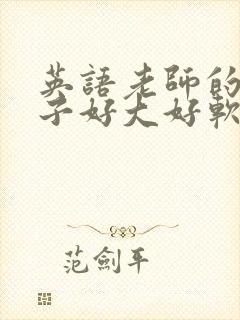 英語老師的
子好大好軟
范劍平